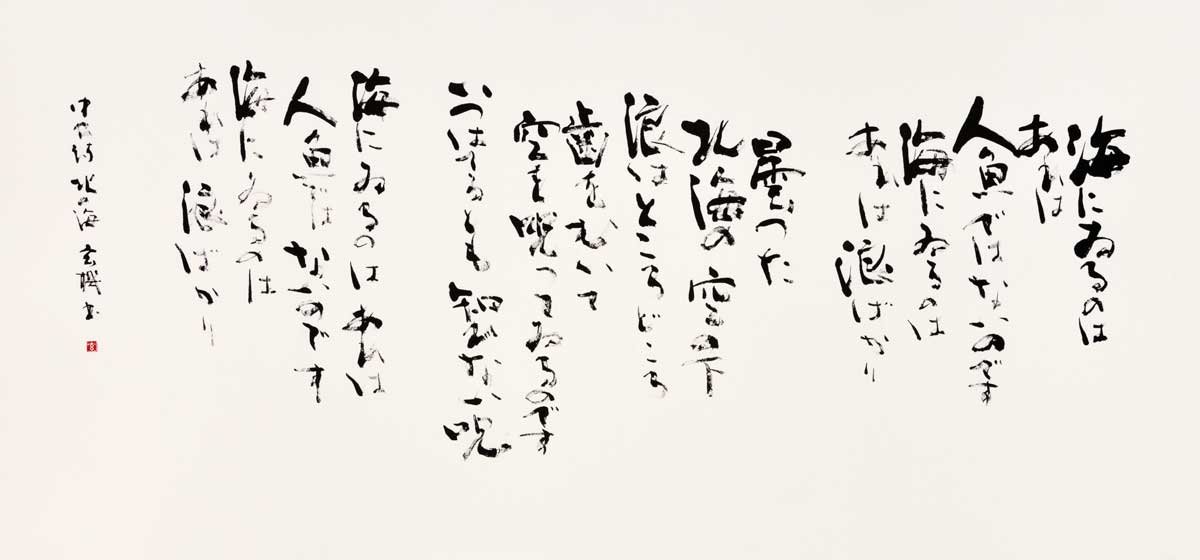 海にゐるのは
あれは
人魚ではないのです
海にゐるのは
あれは浪ばかり
曇つた
北海の空の下
浪はところどころ
歯をむいて
空を呪つてゐるのです
いつはてるとも知れない呪
海にゐるのはあれは
人魚ではないのです
海にゐるのは
あれは浪ばかり
中也詩 北の海 玄機書